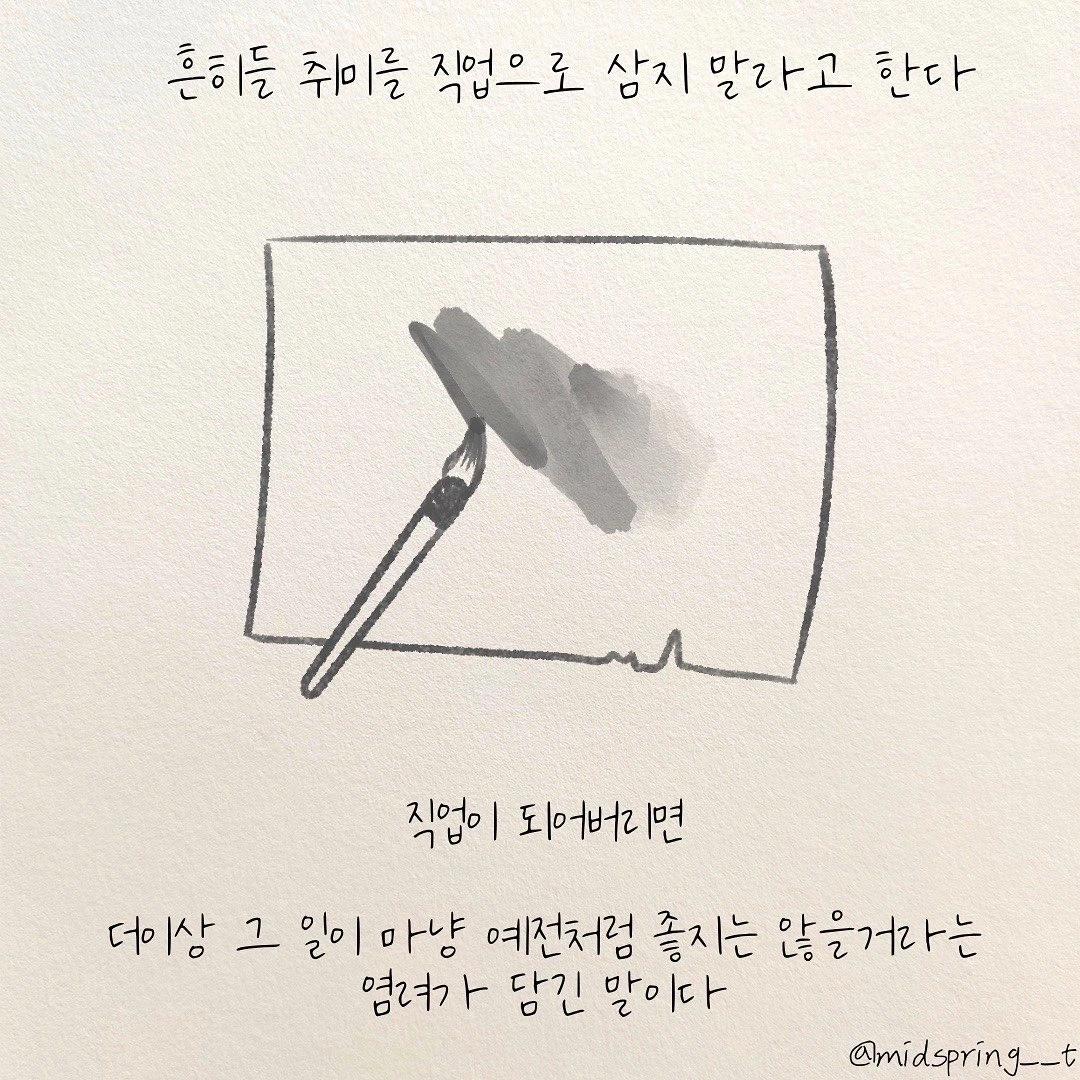 흔히들 취미를 직업으로 삼지 말라고 한다
직업이 되어버리면
더이상 그 일이 마냥 예전처럼 좋지는 않을거라는
염려가 담긴 말이다
@midspring__t